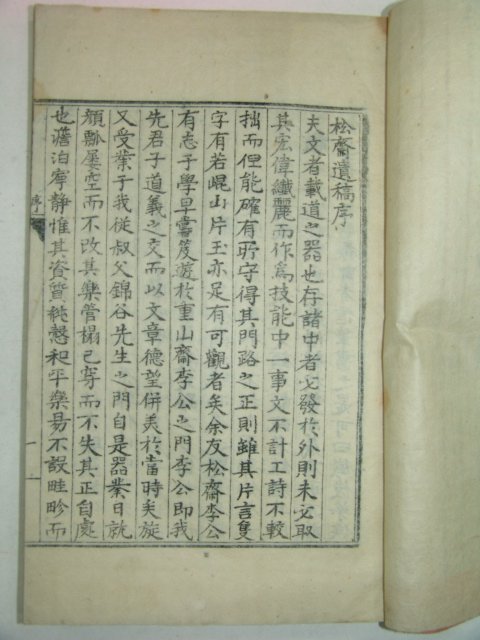 松齋遺稿序
夫文者載道之器也存諸中者必發於外則未必取
其宏偉纖麗而作爲技能中一事文不計工詩不較
拙而但能確有所守得其門路之正則雖其片言隻
字有若崐山片玉亦足有可觀者矣余友松齋李公
有志于學早嘗笈遊於重山齋李公之門李公即我
先君子道義之交而以文章德望併美於當時矣旋
又受業于我從叔父錦谷先生之門自是器業日就
顔瓢屢空而不改其樂管榻已穿而不失其正自處
也澹泊寧靜惟其資質純慤和平樂易不設畦畛而
序
一